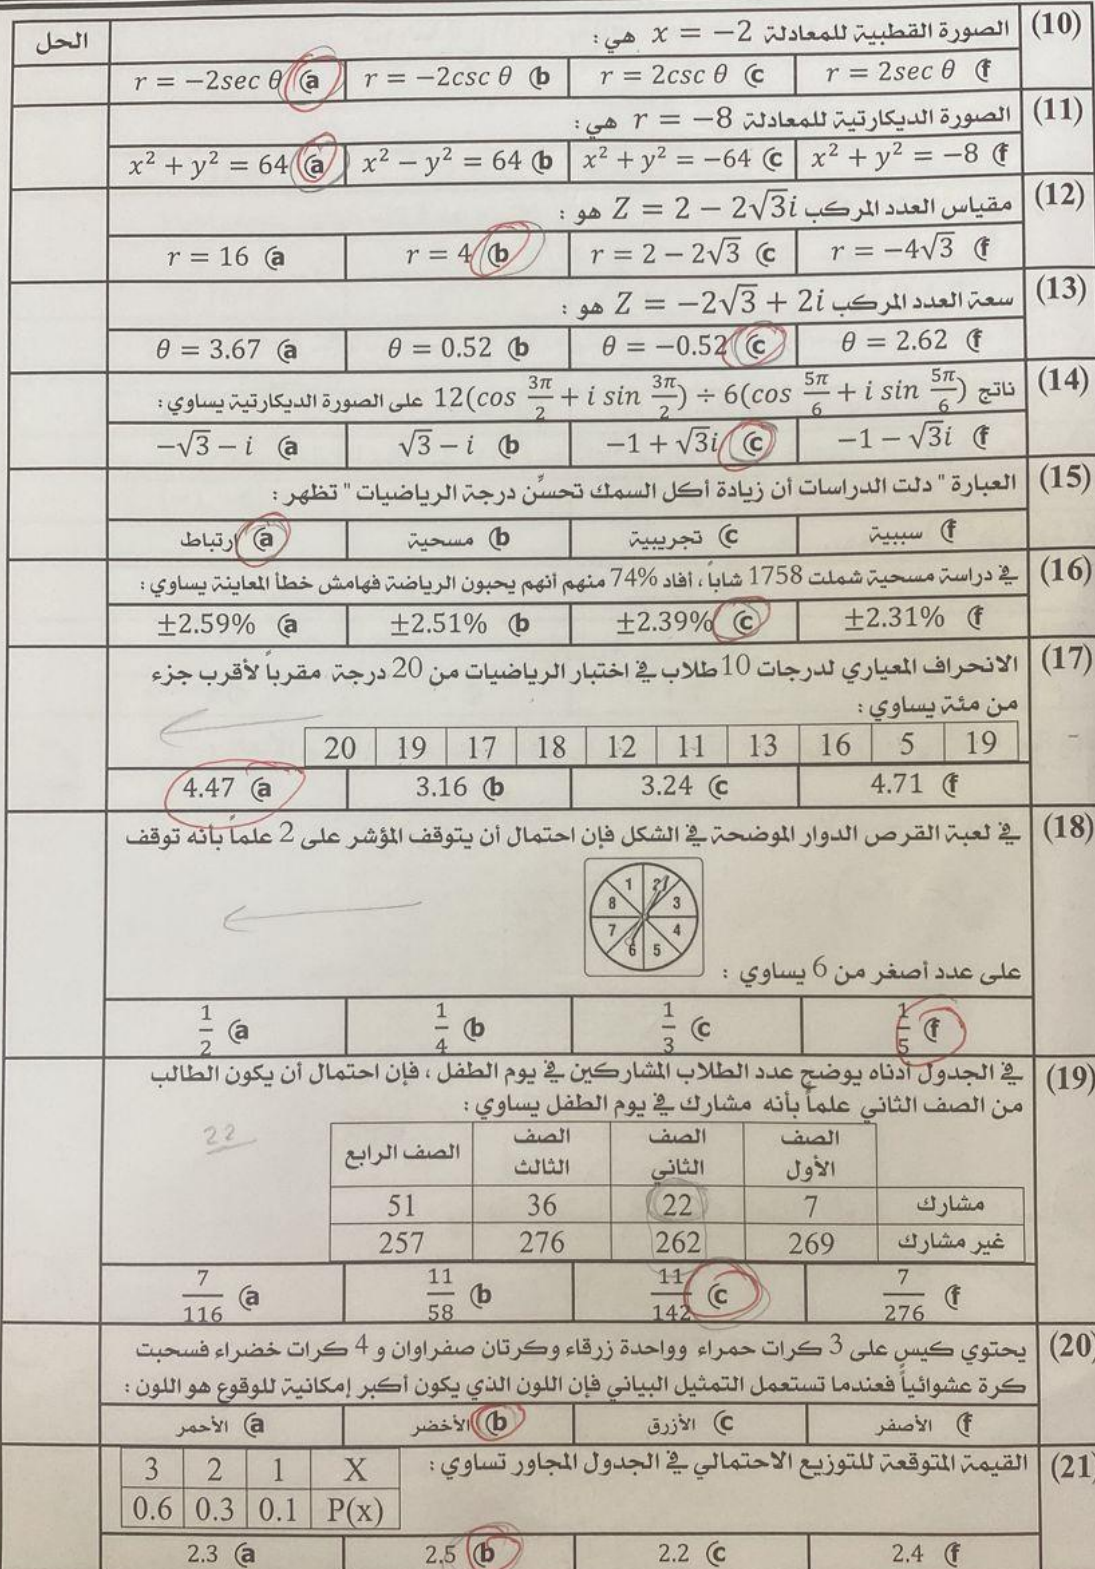 الحل
(10) الصورة القطبية للمعادلة x = −2 هي :
f) r = 2sec θ c) r = 2csc θ b) r = −2csc θ a) r = −2sec θ
(11) الصورة الديكارتية للمعادلة r = −8 هي :
f) x² + y² = −8 c) x² + y² = −64 b) x² − y² = 64 a) x² + y² = 64
(12) مقياس العدد المركب Z = 2 − 2√3i هو :
f) r = −4√3 c) r = 2 − 2√3 b) r = 4 a) r = 16
(13) سعة العدد المركب Z = −2√3 + 2i هو :
f) θ = 2.62 c) θ = −0.52 b) θ = 0.52 a) θ = 3.67
(14) ناتج 12(cos 3π/2 + i sin 3π/2) ÷ 6(cos 5π/6 + i sin 5π/6) على الصورة الديكارتية يساوي :
f) −1 − √3i c) −1 + √3i b) √3 − i a) −√3 − i
(15) العبارة " دلت الدراسات أن زيادة أكل السمك تحسِّن درجة الرياضيات " تظهر :
f) سببية c) تجريبية b) مسحية a) ارتباط
(16) في دراسة مسحية شملت 1758 شاباً ، أفاد 74% منهم أنهم يحبون الرياضة فهامش خطأ المعاينة يساوي :
f) ±2.31% c) ±2.39% b) ±2.51% a) ±2.59%
(17) الانحراف المعياري لدرجات 10 طلاب في اختبار الرياضيات من 20 درجة مقرباً لأقرب جزء
من مئة يساوي :
20 19 17 18 12 11 13 16 5 19
f) 4.71 c) 3.24 b) 3.16 a) 4.47
(18) في لعبة القرص الدوار الموضحة في الشكل فإن احتمال أن يتوقف المؤشر على 2 علماً بأنه توقف
1 2 3 4 5 6 7 8
على عدد أصغر من 6 يساوي :
f) 1/5 c) 1/3 b) 1/4 a) 1/2
(19) في الجدول أدناه يوضح عدد الطلاب المشاركين في يوم الطفل ، فإن احتمال أن يكون الطالب
من الصف الثاني علماً بأنه مشارك في يوم الطفل يساوي :
22
الصف الأول الصف الثاني الصف الثالث الصف الرابع
مشارك 7 22 36 51
غير مشارك 269 262 276 257
f) 7/276 c) 11/142 b) 11/58 a) 7/116
(20) يحتوي كيس على 3 كرات حمراء وواحدة زرقاء وكرتان صفراوان و 4 كرات خضراء فسحبت
كرة عشوائياً فعندما تستعمل التمثيل البياني فإن اللون الذي يكون أكبر إمكانية للوقوع هو اللون :
f) الأصفر c) الأزرق b) الأخضر a) الأحمر
(21) القيمة المتوقعة للتوزيع الاحتمالي في الجدول المجاور تساوي :
3 2 1 X
0.6 0.3 0.1 P(x)
f) 2.4 c) 2.2 b) 2.5 a) 2.3